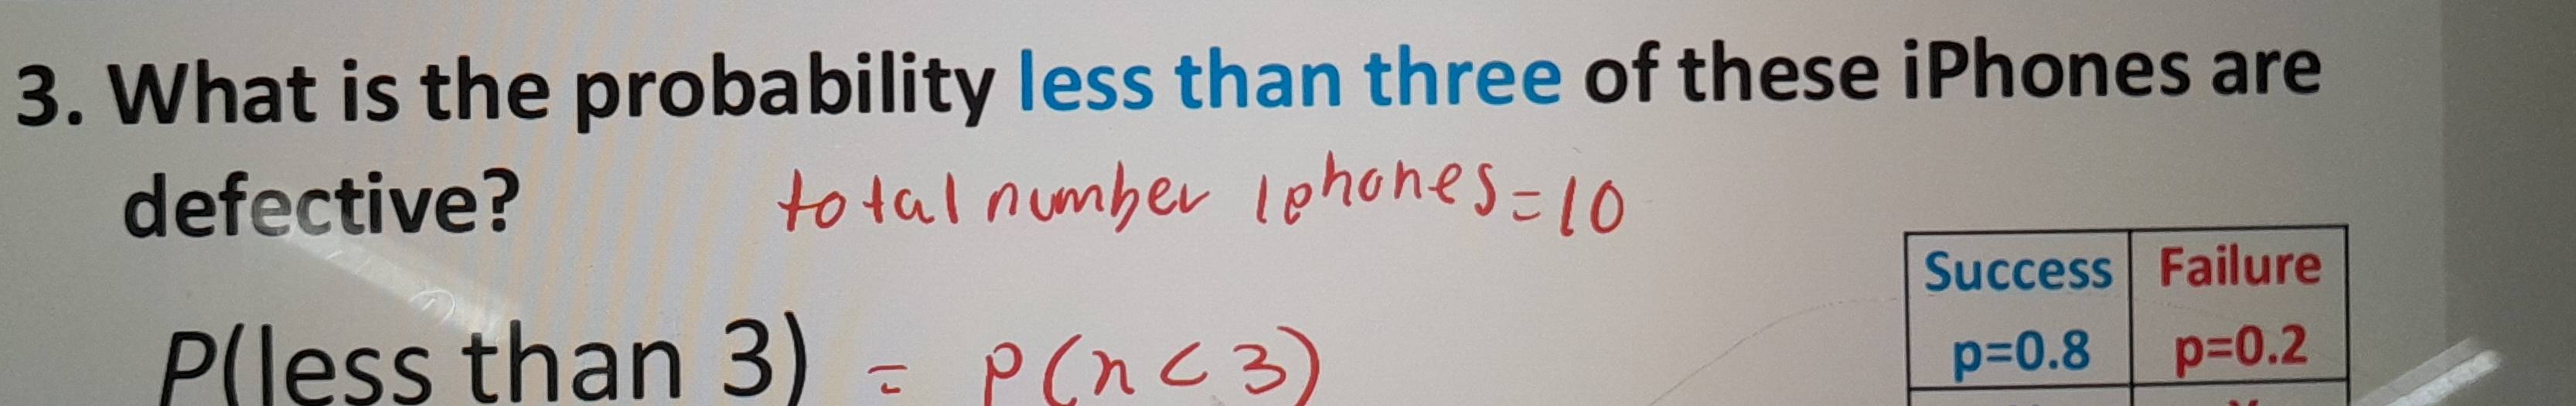 3. What is the probability less than three of these iPhones are
defective?
total number Iphones=10
Success Failure
p=0.8 p=0.2
P(less than 3) = P(n<3)